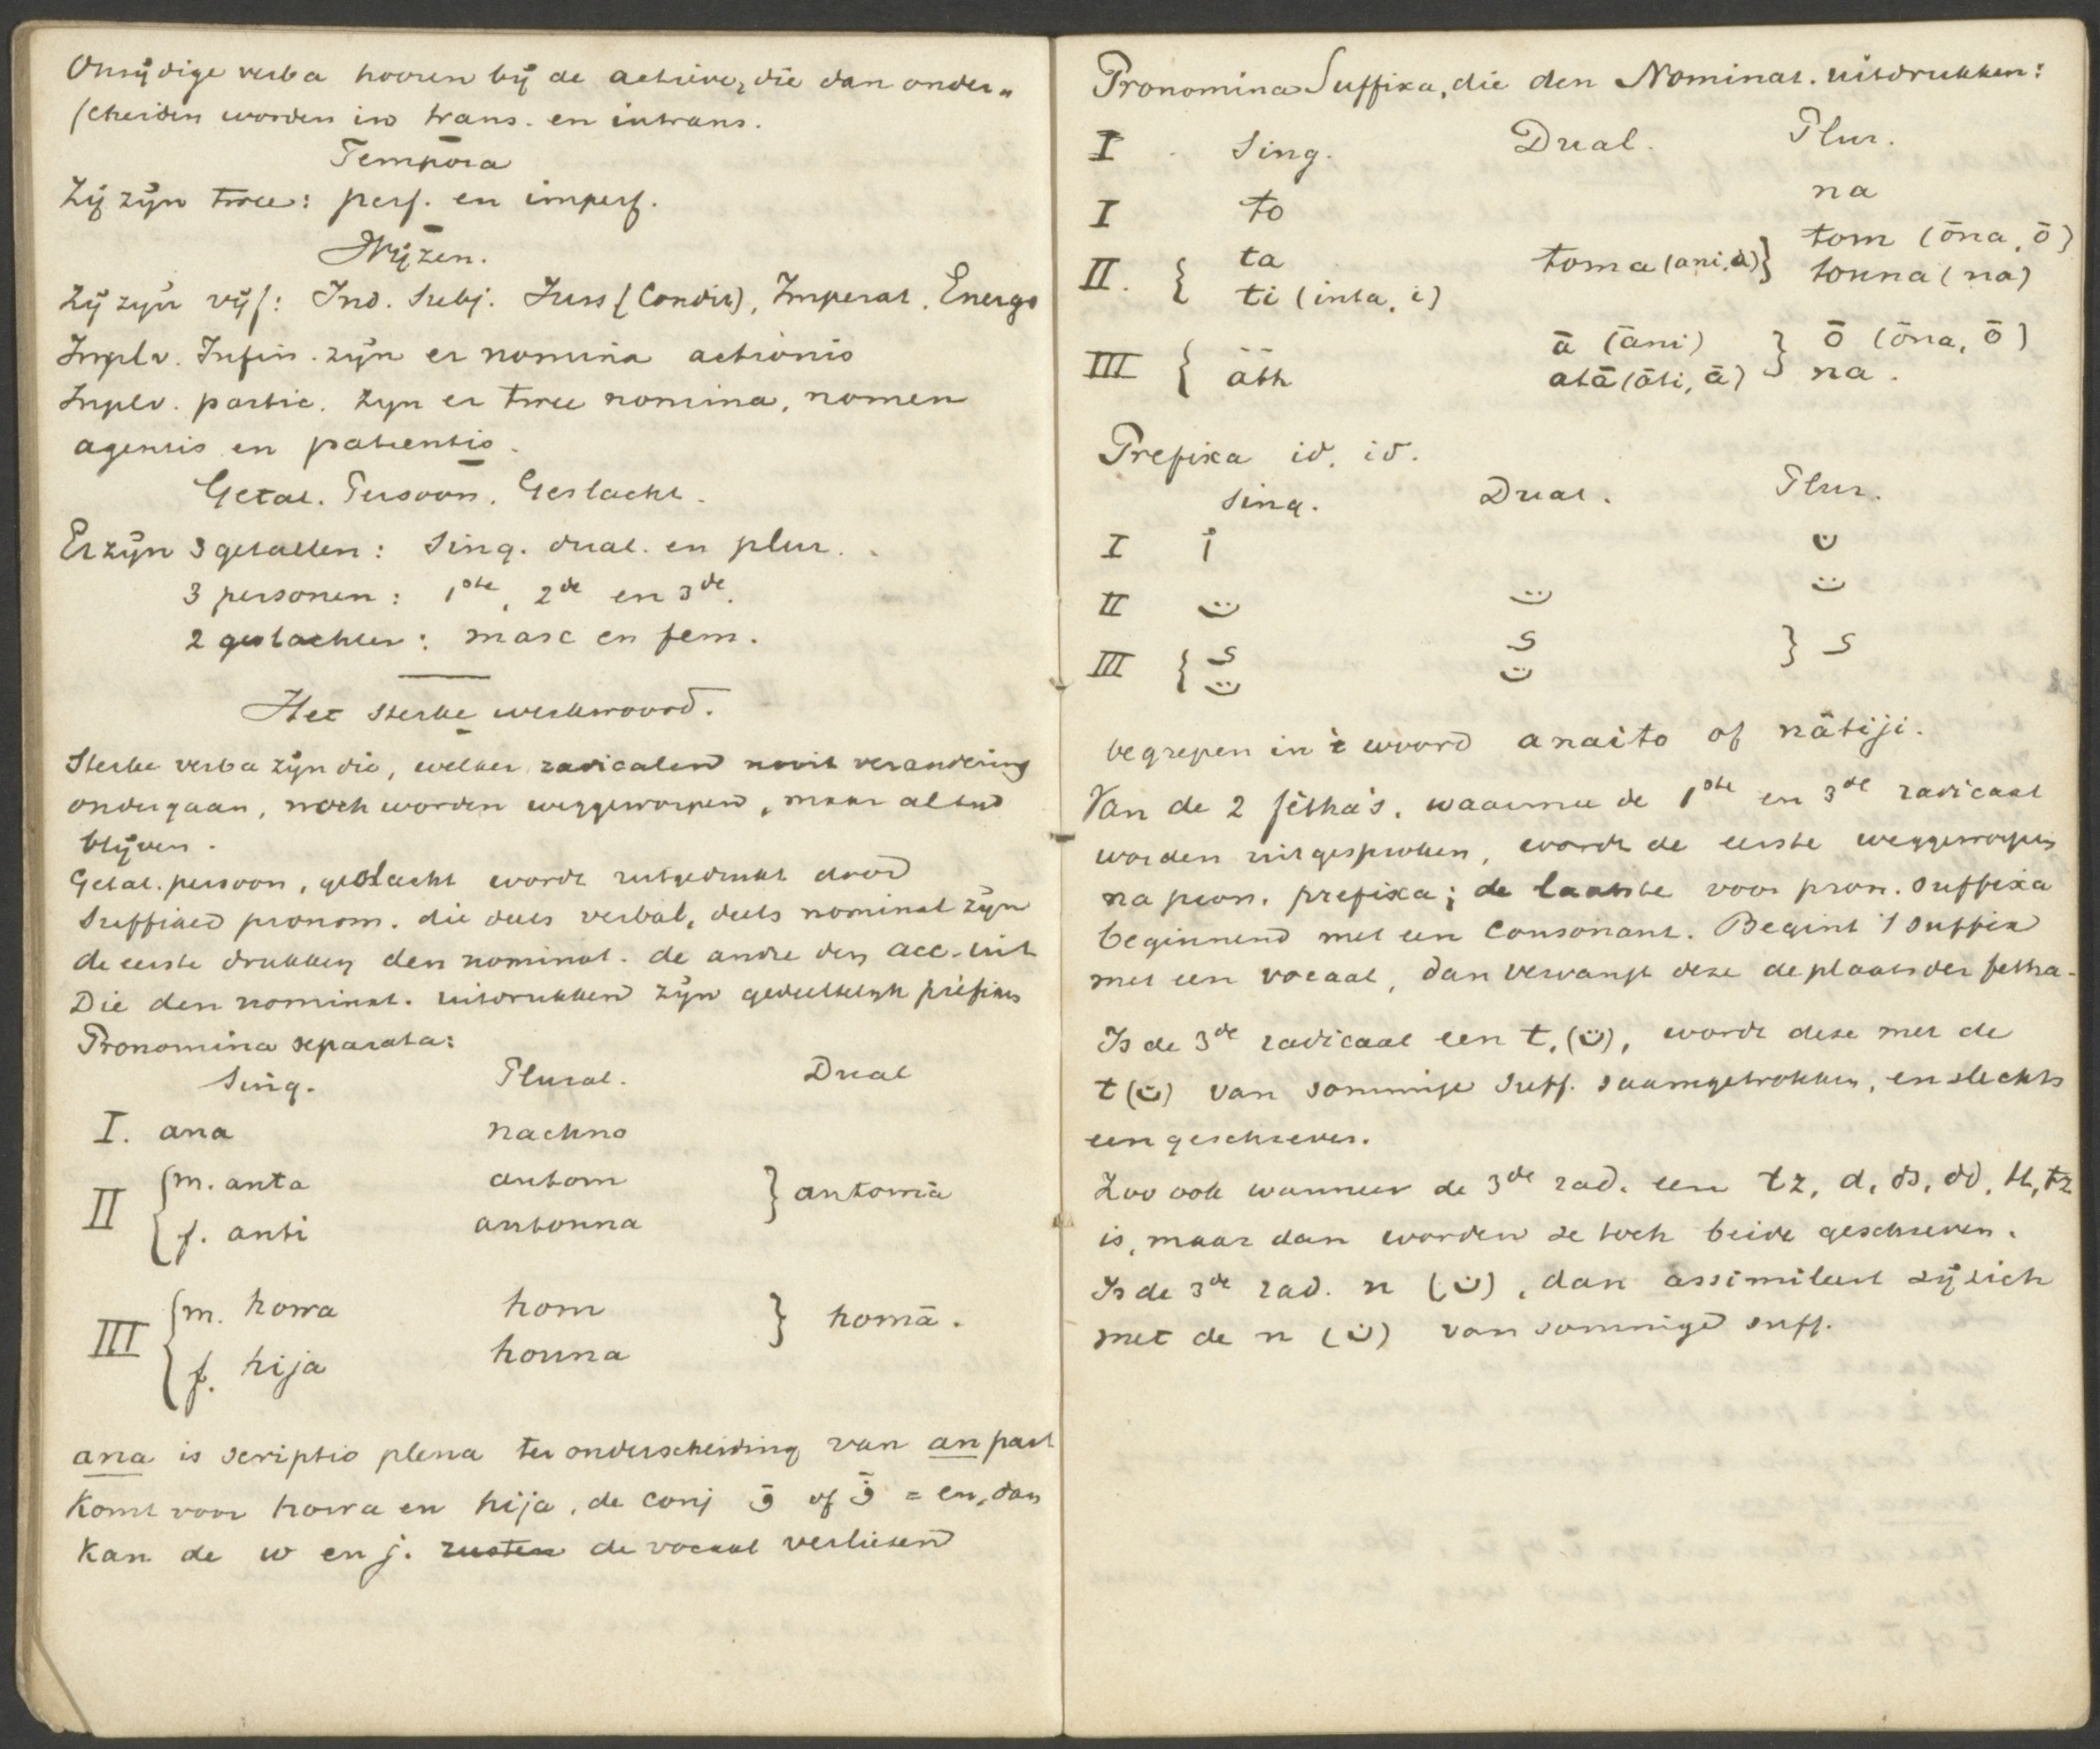 Onzijdige verba hooren bij de actieve, die dan onder„
scheiden worden in trans. en intrans.
Tempora
Zij zijn twee: perf. en imperf.
Wijzen.
Zij zijn vijf: Ind. Subj. Juss (Condit), Imperat. Energ
Inplv. Infin. zijn er nomina actionis
Inplv. partic. zijn er twee nomina, nomen
agentis en patientis.
Getal. Persoon. Geslacht.
Er zijn 3 getallen: Sing. dual. en plur.
3 personen: 1ste, 2de en 3de.
2 geslachten: masc en fem.
Het sterke werkwoord.
Sterke verba zijn die, welker radicalen nooit verandering
ondergaan, noch worden weggeworpen, maar altijd
blijven.
Getal. persoon, geslacht wordt uitgedrukt door
Suffixed pronom. die deels verbal, deels nominal zijn
de eerste drukken den nominat. de andre den acc. uit
Die den nominat. uitdrukken zijn gedeeltelijk prefixes
Pronomina separata:
Sing. Plural. Dual
I. ana nachno
II { m. anta antom } antomā
f. anti antonna
III { m. howa hom } homā.
f. hija honna
ana is scriptio plena ter onderscheiding van an part
Komt voor howa en hija, de conj و of ف = en, dan
kan de w en j. rusten de vocaal verliezen
Pronomina Suffixa, die den Nominat. uitdrukken:
I Sing. Dual. Plur.
I to na
II. { ta toma (ani, ā) } tom (ōna, ō)
ti (inta, i) tonna (na)
III { ā (āni) } ō (ōna, ō)
ath atā (āti, ā) na.
Prefixa id. id.
Sing. Dual. Plur.
I أ ن
II ت ت ت
III { ى ى } ى
ت ت
begrepen in 't woord anaito of nātiji.
Van de 2 fètha's, waarmee de 1ste en 3de radicaal
worden uitgesproken, wordt de eerste weggeworpen
na pron. prefixa; de laatste voor pron. suffixa
beginnend met een Consonant. Begint 't suffix
met een vocaal, dan vervangt deze de plaats der fetha.
Is de 3de radicaal een t. (ت), wordt deze met de
t (ت) van sommige suff. saamgetrokken, en slechts
een geschreven.
Zoo ook wanneer de 3de rad. een tz, d, ds, dd, tt, tz
is, maar dan worden ze toch beide geschreven.
Is de 3de rad. n (ن), dan assimileert zij zich
met de n (ن) van sommige suff.